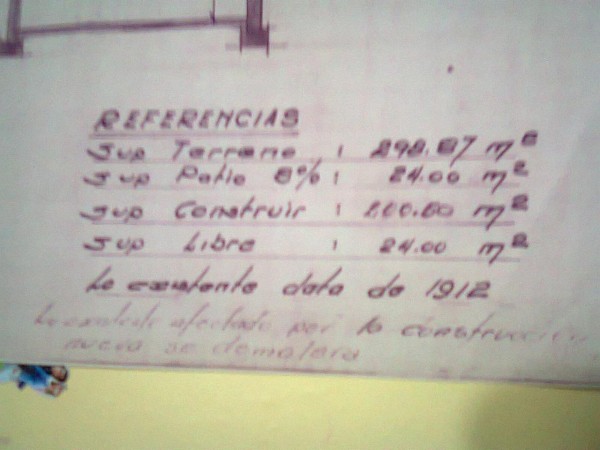 REFERENCIAS
Sup Terreno : 298.87 m²
Sup Patio 8% : 24.00 m²
Sup Construir : 200.60 m²
Sup Libre : 24.00 m²
Lo existente data de 1912
Lo existente afectado por la construccion
nueva se demolera